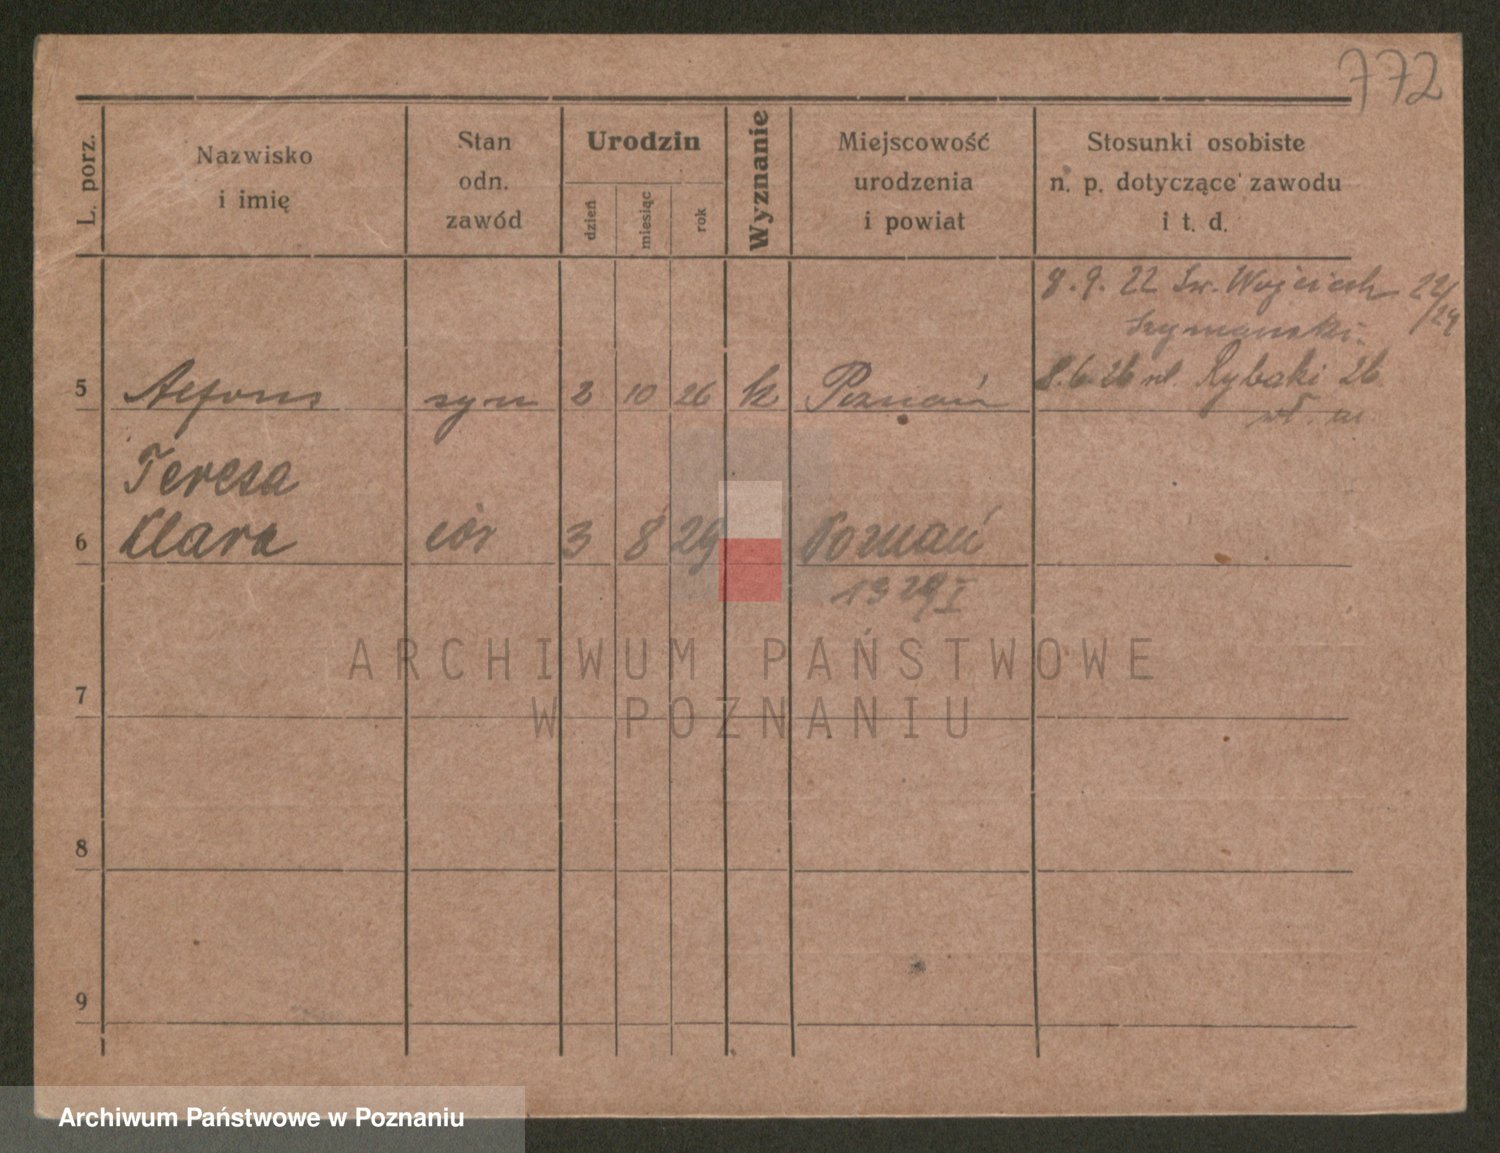 772
L. porz.
Nazwisko
i imię
Stan
odn.
zawód
Urodzin
dzień
miesiąc
rok
Wyznanie
Miejscowość
urodzenia
i powiat
Stosunki osobiste
n. p. dotyczące zawodu
i t. d.
8. 9. 22 Św. Wojciech 22/24
Szymanski.
5 Alfons syn 2 10 26 k Poznań 8.6.26 ul. Rybaki 26
Teresa
6 Klara cór 3 8 29 Poznań
1329 I
ARCHIWUM PAŃSTWOWE
7
W POZNANIU
8
9
Archiwum Państwowe w Poznaniu